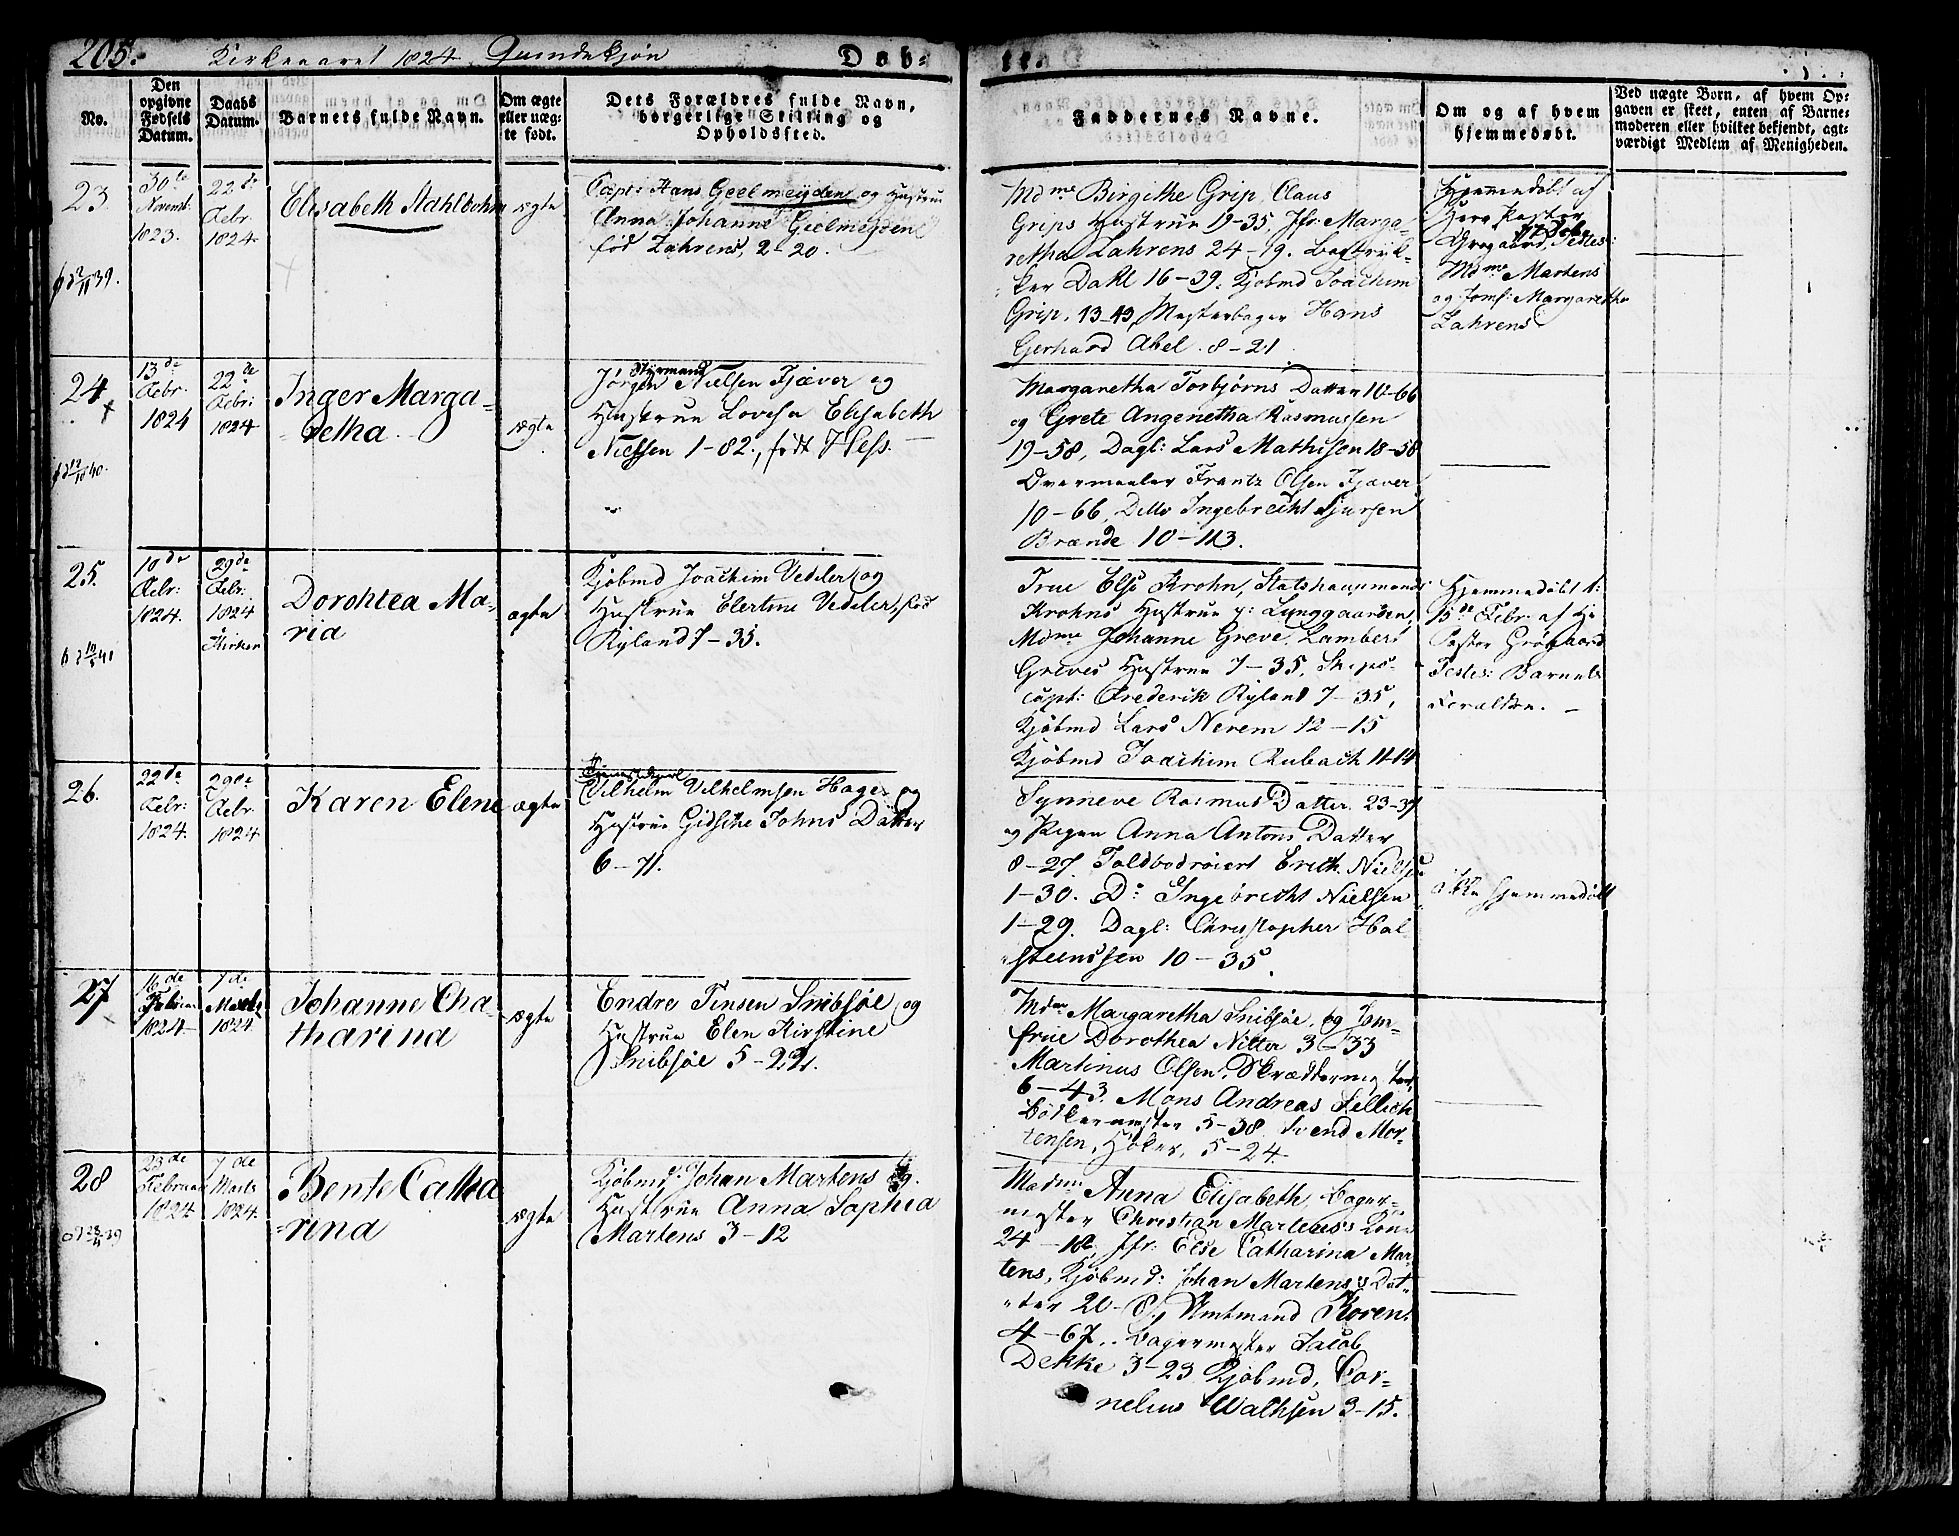 205.
Kirkeaaret 1824. Qvindekjøn
Døb-
te.
No.
Den opgivne Fødsels Datum.
Daabs Datum.
Barnets fulde Navn.
Om ægte eller uæg-te født.
Dets Forældres fulde Navn, borgerlige Stilling og Opholdssted.
Faddernes Navne.
Om og af hvem hjemmedøbt.
Ved uægte Børn, af hvem Op-
gaven er skeet, enten af Barne-
moderen eller hvilket bekjendt, agt-
værdigt Medlem af Menigheden.
23
30te
Novemb:
1823.
22de
Febr.
1824
Elisabeth Stahlbohm
ægte
Capt: Hans Geelmeyden og Hustrue
Anna Johanne Geelmeyden
fød Zahrens, 2-20.
Mdme Birgithe Grip, Claus
Grips Hustrue 19-35. Jfr: Marga-
retha Zahrens 24-19.
Dahl 16-39. Kjøbmd Joachim
Grip. 13-43, Mesterbager Hans
Gerhard Abel. 8-21.
Hjemmedøbt af
Herr Pastor
Grøgaard, Testes:
Mdme Martens
og Jomf: Margaretha
Zahrens
24
13de
Febr.
1824
22de
Febr:
1824
Inger Marga-
retha.
ægte
Styrmand
Jørgen Nielsen Fjæver og
Hustrue Lovesa Elisabeth
Nielsen 1-82., født Hess.
Margaretha Torbjørns Datter 10-66
og Grete Angenetha Rasmussen
19-58, Dagl: Lars Mathisen 18-58
Frantz Olsen Fjæver
10-66, Ditto Ingebrecht Sjursen
Brænde 10-113.
25.
10de
Febr:
1824.
29de
Febr.
1824
i
Kirken
Dorohtea Ma-
ria
ægte
Kjøbmd Joachim Vedeler og
Hustrue Elertine Vedeler, fød
Ryland 7-35.
Frue Else Krohn, Statshauptmand
Krohns Hustrue p: Lunggaarden,
Mdme Johanne Greve, Lambert
Greves Hustrue 7-35, Skips-
capt: Frederik Ryland 7-35,
Kjøbmd Lars Nerem 12-15
Kjøbmd Joachim Rubach 11-14
Hjemmedøbt d:
15de Febr. af Hr
Pastor Grøgaard
Testes: Barnets
Forældre.
26.
22de
Febr:
1824.
29de
Febr.
1824
Karen Elene
ægte
Vilhelm Vilhelmsen Hage og
Hustrue Gidsche Johns Datter
6-71.
Synneve Rasmus Datter. 23-37
og Pigen Anna Antons Datter
8-27. Toldbodroiert Erich Nielsen
1-30. Do Ingebrecht Nielsen
1-29. Dagl: Christopher Hal-
steenssen 10-35.
ikke hjemmedøbt
27
16de
Februar
1824
7de
Marts
1824
Johanne Cha-
tharina
ægte
Endre Tensen Snibsøe og
Hustrue Elen Kirstine
Snibsøe 5-22.
Mdme Margaretha Snibsøe, og Jom-
frue Dorothea Nitter 3-33
Martinus Olsen, Skræddermester,
6-43. Mons Andreas Lillich
Bødkermester 5-38. Svend Mor-
tensen, Høker, 5-24.
28
23de
Februar
1824
7de
Marts
1824.
Bente Catha-
rina
ægte
Kjøbmd: Johan Martens og
Hustrue Anna Sophia
Martens 3-12
Madme Anna Elisabeth, Bager-
mester Christian Martens's Kone
24-18, Jfr: Else Catharina Mar-
tens, Kjøbmd: Johan Martens's Dat-
ter 20- Amtmand Koren.
4-67. Bagermester Jacob
Dekke 3-23 Kjøbmd, Cor-
nelius Walhsen 3-15.